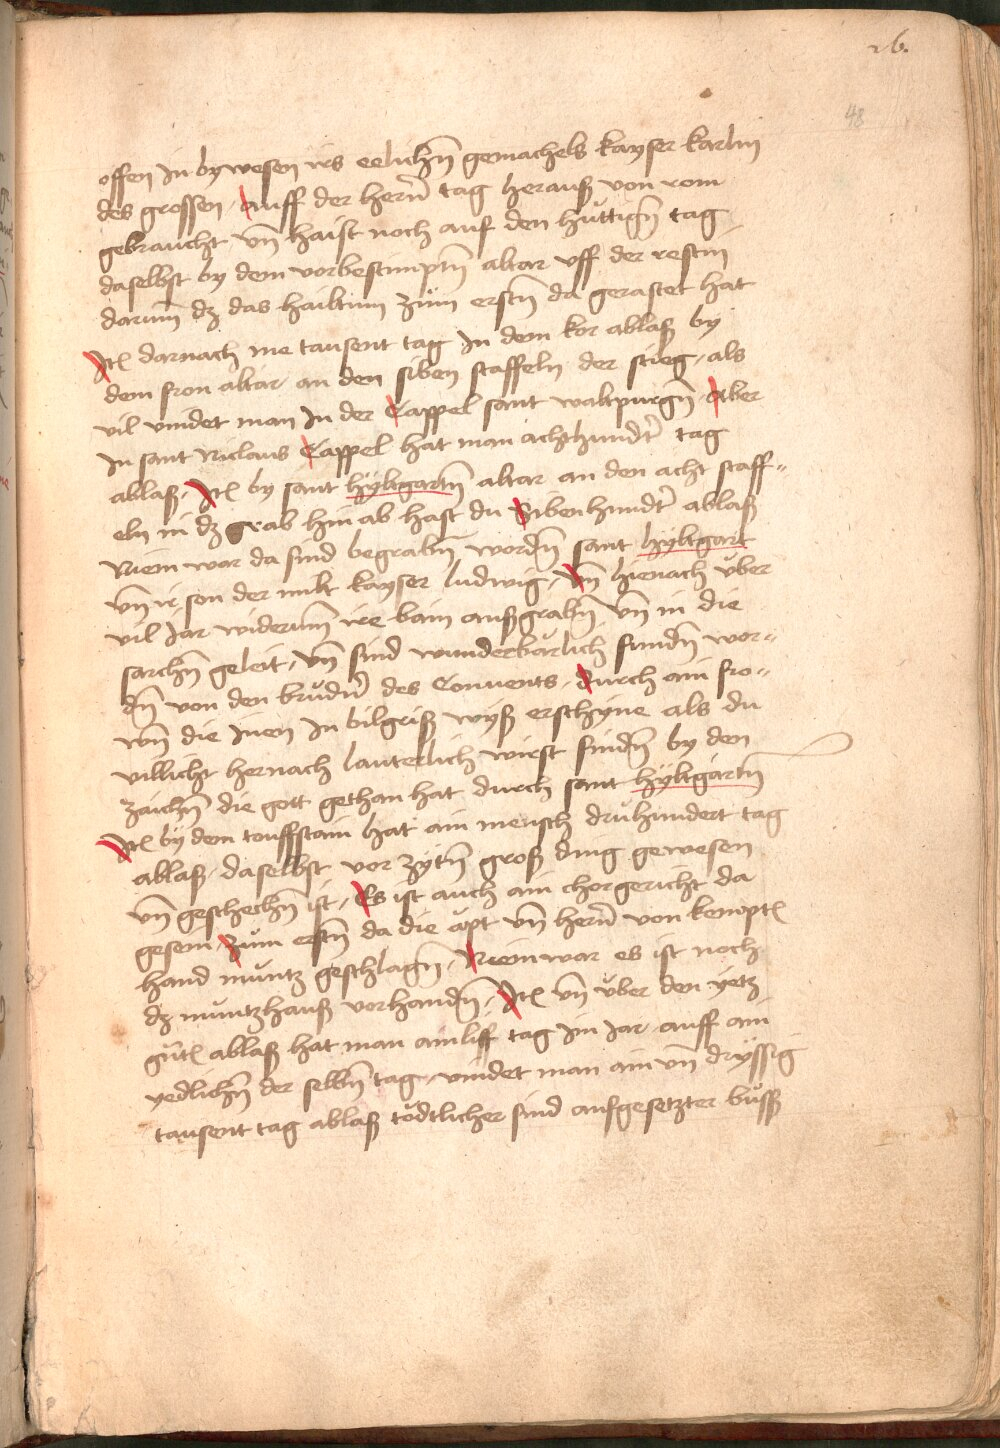 26.
48
offen in bywesen irs eelichn̄ gemachels kayser karlin
des grossen. auff der hern̄ tag herauß von rom
gebraucht vn̄ haist noch auf den hu̍ttign̄ tag
daselbst by dem vorbestimptn̄ altar vff der restin
darum̄ dz das hailtum zům erstn̄ da gerastet hat
Itē darnach me tausent tag In dem kor ablaß by
dem fron altar an den siben staffeln der stieg. als
vil vindet man In der Cappel sant waltpurgn̄. Aber
In sant Niclaus Cappel hat man achthundert tag
ablaß. Itē by sant hyltgartn̄ altar an den acht staff=
eln in dz grab hin ab hast du Sibenhundert ablaß
Niem war da sind begrabn̄ wordn̄ sant hyltgart
vn̄ ir son der milt kayser ludwig. vn̄ hienach u̍ber
vil Jar widerum̄ ire bain außgrabn̄ vn̄ in die
sarchn̄ geleit. vn̄ sind wunderbarlich fundn̄ wor=
dn̄ von den bru̍der̄ des Conuents. durch ain fro=
wn̄ die Inen In bilgriß wyß erschyne als du
villicht hernach lauterlich wirst findn̄ by den
zaichn̄ die gott gethan hat durch sant hyltgartn̄
Itē by dem touffstain hat ain mensch dru̍hundert tag
ablaß. daselbst vor zytn̄ groß ding gewesen
vn̄ geschechn̄ ist. Es ist auch ain chorgericht da
gesein zum erstn̄ da die äpt vn̄ hern̄ von kemptē
hand mu̍ntz geschlagn̄. Niem war es ist noch
dz mu̍ntzhauß vorhandn̄. Itē vn̄ u̍ber den yetz
gůtē ablaß hat man ainliff tag im Jar auff ain
yedlichn̄ der selbn̄ tag vindet man ain vn̄ dryssig
tausent tag ablaß tödtlicher sind aufgesetzter bu̍ß